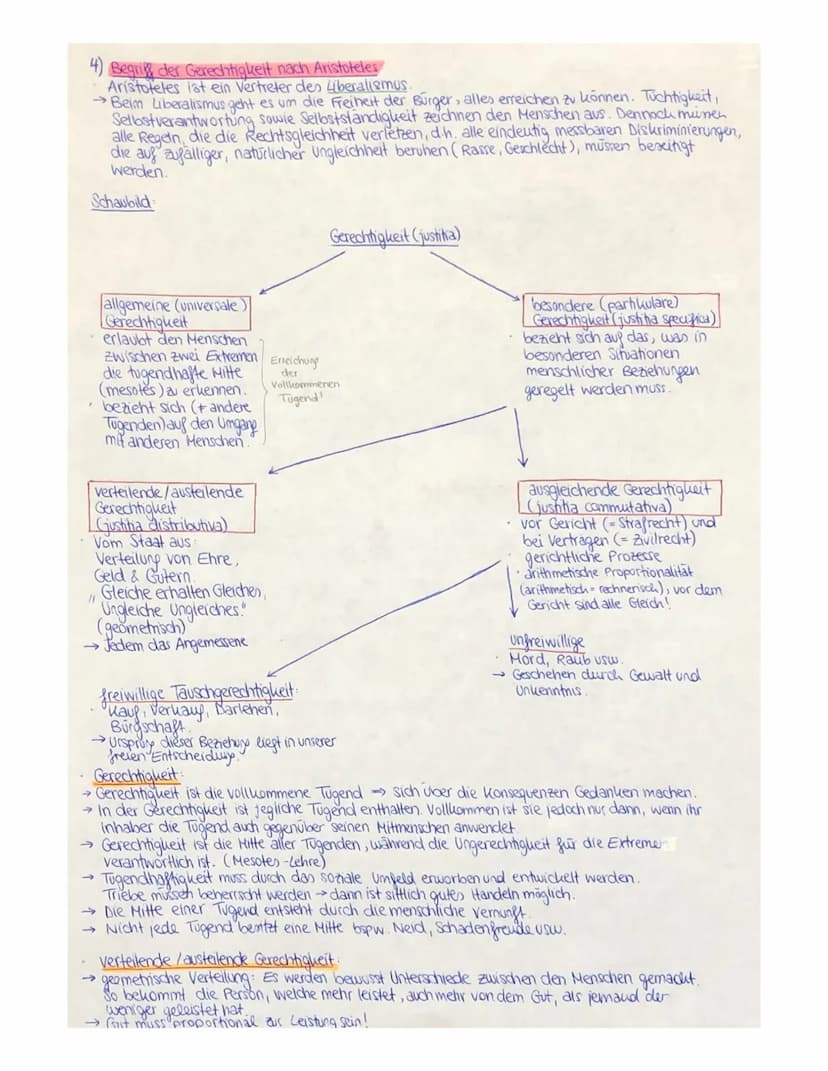 4) Begriff der Gerechtigkeit nach Aristoteles
· Aristoteles ist ein Vertreter des Liberalismus.
→ Beim Liberalismus geht es um die Freiheit der Bürger, alles erreichen zu können. Tüchtigkeit,
Selbstverantwortung sowie Selbstständigkeit zeichnen den Menschen aus. Dennoch müssen
alle Regeln, die die Rechtsgleichheit verletzen, d.h. alle eindeutig messbaren Diskriminierungen,
die auf zufälliger, natürlicher Ungleichheit beruhen (Rasse, Geschlecht), müssen beseitigt
werden.
Schaubild:
Gerechtigkeit (justitia)
allgemeine (universale)
Gerechtigkeit
· erlaubt den Menschen
zwischen zwei Extremen
die tugendhafte Mitte
(mesotes) zu erkennen.
· bezieht sich (+ andere
Tugenden) auf den Umgang
mit anderen Menschen.
Erreichung
der
vollkommenen
Tugend!
besondere (partikulare)
Gerechtigkeit (justitia specifica)
· bezieht sich auf das, was in
besonderen Situationen
menschlicher Beziehungen
geregelt werden muss.
verteilende/austeilende
Gerechtigkeit
(justitia distributiva)
· Vom Staat aus:
Verteilung von Ehre,
Geld & Gütern.
„Gleiche erhalten Gleiches,
Ungleiche Ungleiches."
(geometrisch)
→ Jedem das Angemessene
ausgleichende Gerechtigkeit
(justitia commutativa)
· vor Gericht (= Strafrecht) und
bei Verträgen (= Zivilrecht)
· gerichtliche Prozesse
· arithmetische Proportionalität
(arithmetisch = rechnerisch), vor dem
Gericht sind alle Gleich!
unfreiwillige
· Mord, Raub usw.
→ Geschehen durch Gewalt und
Unkenntnis.
freiwillige Tauschgerechtigkeit:
· Kauf, Verkauf, Darlehen,
Bürgschaft.
→ Ursprung dieser Beziehung liegt in unserer
freien Entscheidung.
· Gerechtigkeit:
→ Gerechtigkeit ist die vollkommene Tugend ⇒ sich über die Konsequenzen Gedanken machen.
→ In der Gerechtigkeit ist jegliche Tugend enthalten. Vollkommen ist sie jedoch nur dann, wenn ihr
Inhaber die Tugend auch gegenüber seinen Mitmenschen anwendet.
→ Gerechtigkeit ist die Mitte aller Tugenden, während die Ungerechtigkeit für die Extreme
verantwortlich ist. (Mesotes-Lehre)
→ Tugendhaftigkeit muss durch das soziale Umfeld erworben und entwickelt werden.
Triebe müssen beherrscht werden → dann ist sittlich gutes Handeln möglich.
→ Die Mitte einer Tugend entsteht durch die menschliche Vernunft.
→ Nicht jede Tugend besitzt eine Mitte bspw. Neid, Schadenfreude usw.
· verteilende/austeilende Gerechtigkeit:
→ geometrische Verteilung: Es werden bewusst Unterschiede zwischen den Menschen gemacht.
So bekommt die Person, welche mehr leistet, auch mehr von dem Gut, als jemand der
weniger geleistet hat.
→ Gut muss proportional zur Leistung sein!